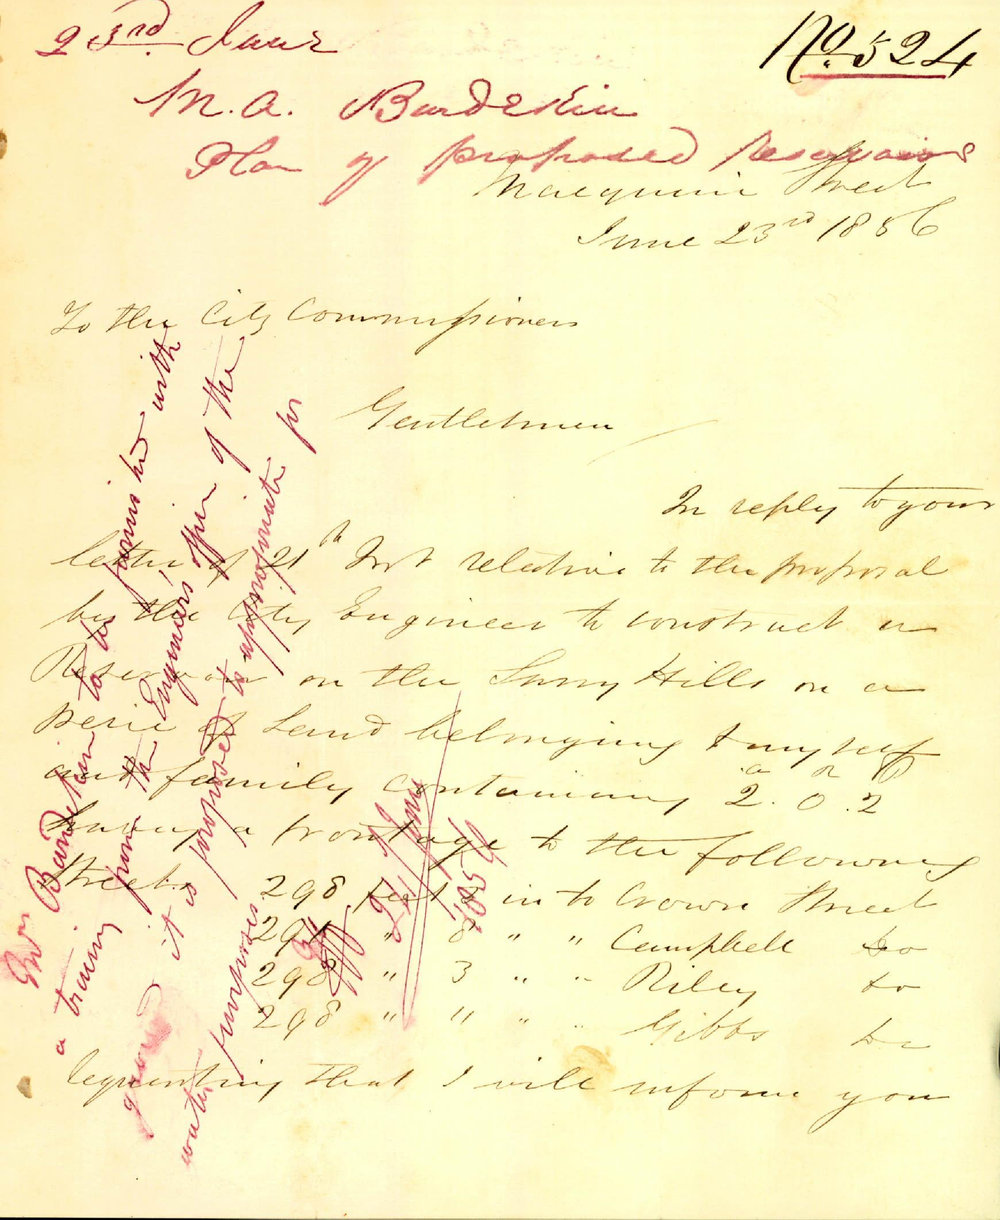 23rd June
No. 524
M.A. Burdekin
Plan of proposed Reservoir
Macquarie Street
June 23rd 1856
To the City Commissioners
Gentlemen
In reply to your
letter of 21th Inst relative to the proposal
by the City Engineer to construct a
Reservoir on the Surry Hills on a
Peice of Land belonging to myself
and family containing 2a. 0r. 2p
having a frontage to the following
Streets 298 feet in to Crown Street
" 8 " " Campbell do
298 " 3 " " Riley do
298 " " " " Gibbs do
requesting that I will inform you
Mr Burdekin to be furnished with
a tracing from the Engineer's office of the
ground it is proposed to appropriate for
water purposes
24/June
1856